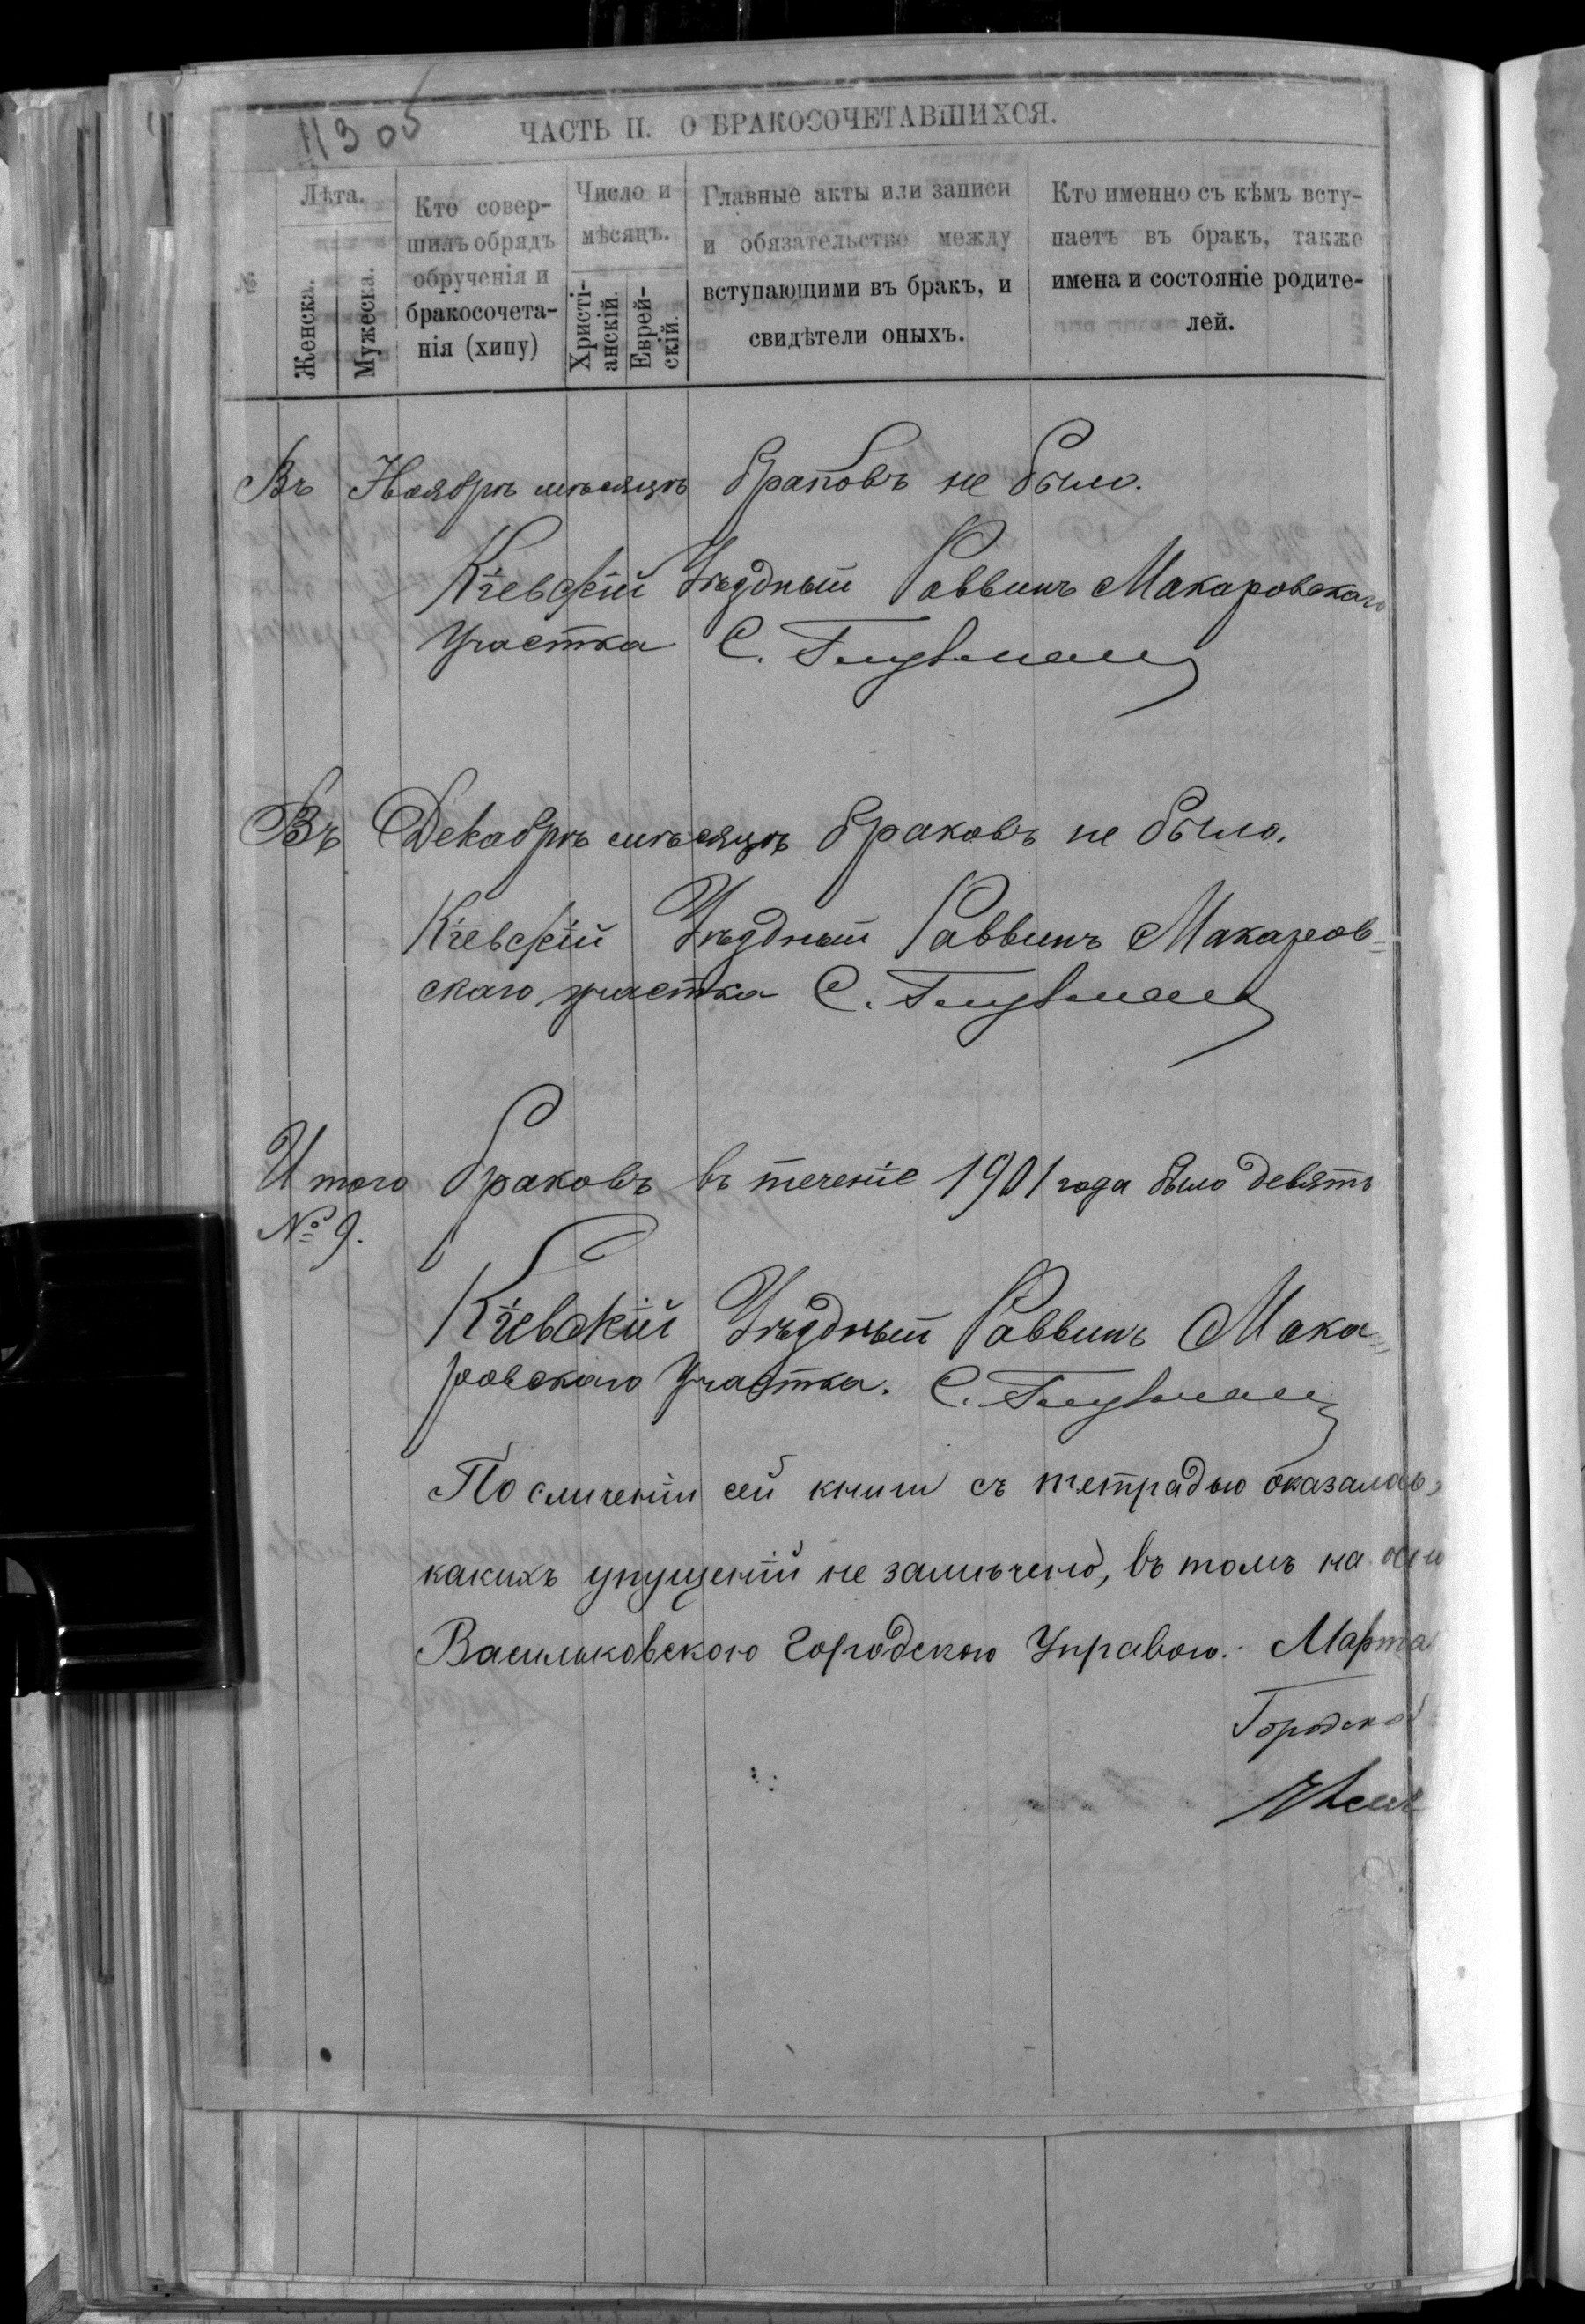 4305
ЧАСТЬ II. О БРАКОСОЧЕТАВШИХСЯ.
№
Лѣта.
Женска.
Мужеска.
Кто совер-
шилъ обрядъ
обрученія и
бракосочета-
нія (хипу)
Число и
мѣсяцъ.
Христі-
анскій.
Еврей-
скій.
Главные акты или записи
и обязательство между
вступающими въ бракъ, и
свидѣтели оныхъ.
Кто именно съ кѣмъ всту-
паетъ въ бракъ, также
имена и состояніе родите-
лей.
Въ Ноябрѣ мѣсяцѣ браковъ не было.
Кіевскій Уѣздный Раввинъ Макаровскаго
Участка С.
Въ Декабрѣ мѣсяцѣ браковъ не было.
Кіевскій Уѣздный Раввинъ Макаров=
скаго участка С.
Итого браковъ въ теченіе 1901 года было девять
№ 9.
Кіевскій Уѣздный Раввинъ Мака=
ровскаго Участка. С.
По сличеніи сей книги съ тетрадью оказалось,
какихъ упущеній не замѣчено, въ томъ на
Васильковскою Городскою Управою. Марта
Городской